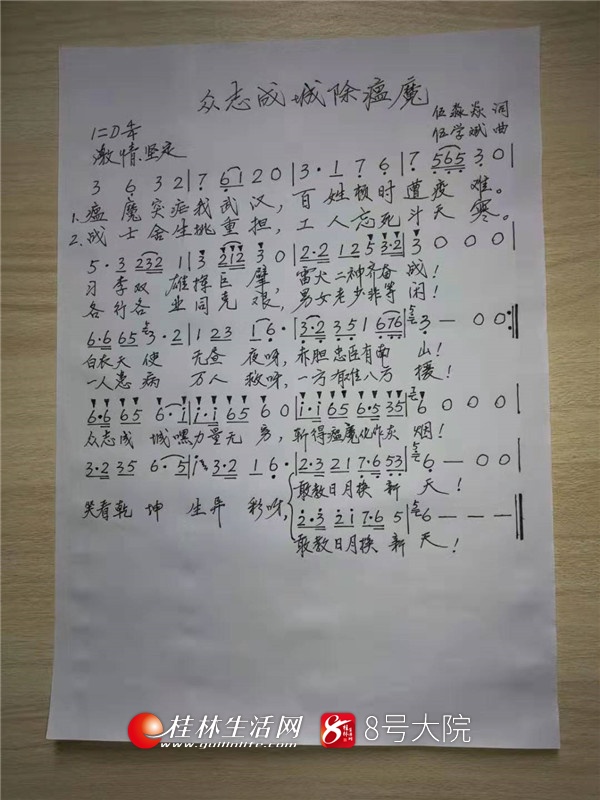 众志成城除瘟魔
伍淼焱 词
伍学斌 曲
激情.坚定
3 6 3 2 | 7 6 1 2 0 | 3 · 1 7 6 | 7 5 6 5 3 0 |
1. 瘟 魔 突 症 我 武 汉, 百 姓 顿 时 遭 疫 难。
2. 战 士 舍 生 挑 重 担, 工 人 忘 死 斗 天 寒。
5 · 3 2 3 2 1 | 3 2 1 2 3 0 | 2 · 2 1 2 5 3 · 2 | 3 0 0 0 |
习 李 双 雄 挥 巨 擘, 雷 火 二 神 齐 奋 战!
各 行 各 业 同 克 艰, 男 女 老 少 非 等 闲!
6 · 6 6 5 3 · 2 | 1 2 3 1 6 · | 3 · 2 3 5 1 6 7 6 | 3 — 0 0 :
白衣天 使 元 昼 夜呀, 赤胆 忠臣有南 山!
一人患 病 万 人 救呀, 一方 有难八方 援!
6 · 6 6 5 6 · i | i · i 6 5 6 0 | i · i 6 5 6 · 5 3 5 | 6 0 0 0 |
众志成 城嘿力量无 穷, 斩得瘟魔化作灰 烟!
3 · 2 3 5 6 · 5 | i 3 · 2 1 6 · | 2 · 3 2 1 7 · 6 5 3 | 6 — 0 0 |
笑看乾 坤 生 异 彩呀, 敢教日月换 新 天!
2 · 3 2 1 7 · 6 5 | 6 — — — ‖
敢教日月换 新 天!
桂林生活网
www.guilinlife.com
8号大院